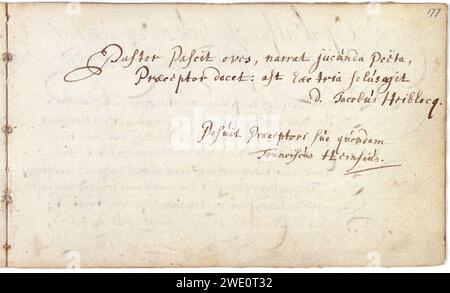 177
Pastor Pascit oves, narrat jucunda Poëta,
Præceptor docet: ast hæc tria solus agit
D. Jacobus Heiblocq.
Posuit Præceptori suo quondam
Franciscus Heinsius.
alamy
www.alamy.com
2WE0T32